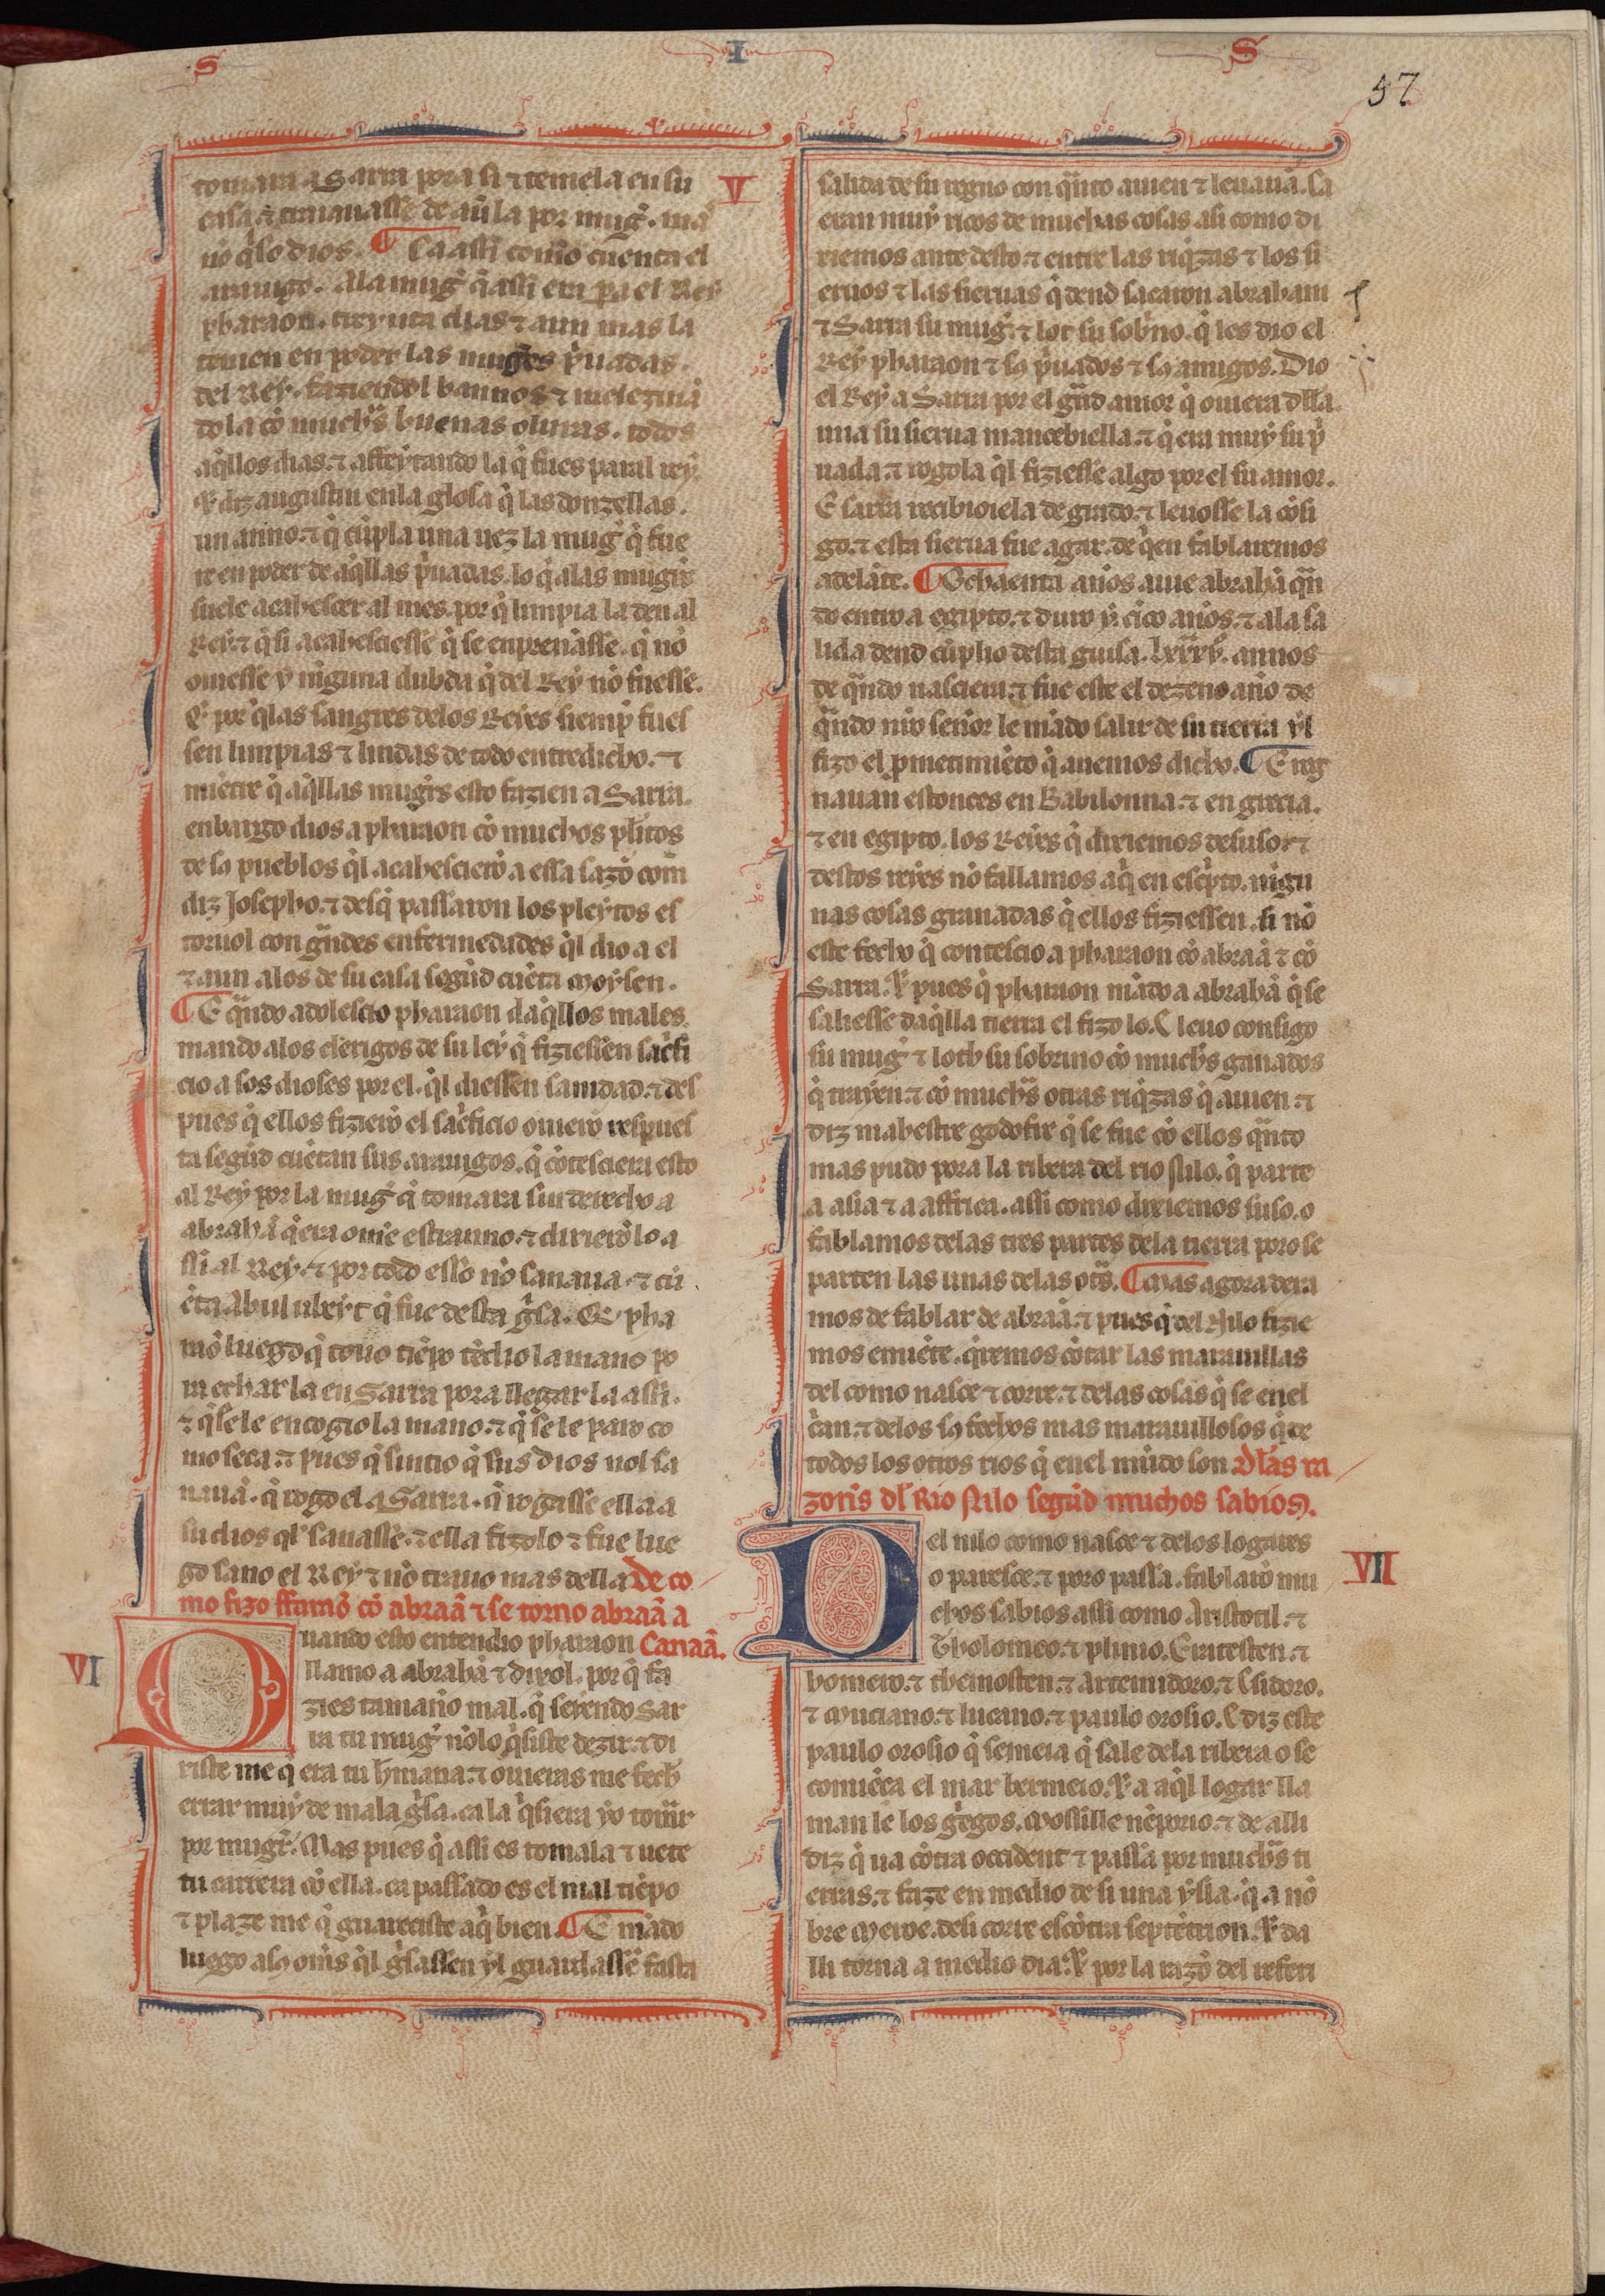 S I S
57
V
tomara a Sarra pora si ⁊ temela en su
casa ⁊ trauaiasse de auer la por mugr̃. mas
nõ q̃lo dios. ¶ Ca assi como cuenta el
arauigo. Ala mug̃r q̃ assi era pa el Rey
pharaon. treynta dias ⁊ aun mas la
tenien en poder las mug̃es p̃uadas.
del Rey. faziendol bannos ⁊ melezinã
dola cõ much̃s buenas oluras. todos
aq̃llos dias. ⁊ affeytando la q̃ fues paral rey.
⁊ diz augustin en la glosa q̃ las donzellas.
un anno. ⁊ q̃ cũpla una uez la mug̃r q̃ fue
re en poder de aq̃llas p̃uadas. lo q̃ a las mugir̃s
suele acahescer al mes. por q̃ limpia la den al
Rey. ⁊ q̃ si acahesciesse q̃ se enprenãsse. q̃ nõ
ouiesse y niguna dubda q̃ del Rey nõ fuesse.
E por q̃ las sangres delos Reyes siemp̃ fues
sen limpias ⁊ lindas de todo entredicho. ⁊
miẽtre q̃ aq̃llas mugir̃s esto fazien a Sarra.
enbargo dios a pharaon cõ muchos pl̃itos
de sos pueblos q̃l acahescierõ a essa sazõ com̃
diz Josepho. ⁊ desq̃ passaron los pleytos es
toruol con gñdes enfermedades q̃l dio a el
⁊ aun alos de su casa segũd cuẽta Moysen.
¶ E q̃ndo adolescio pharaon daq̃llos males.
mando alos clerigos de su ley q̃ fiziessen sac̃fi
cio a sos dioses por el. q̃l diessen sanidad. ⁊ des
pues q̃ ellos fizierõ el sac̃ficio ouierõ respues
ta segũd cuẽtan sus arauigos. q̃ cõtesciera esto
al Rey por la mug̃r q̃ tomara sin derecho a
abrahã q̃ era om̃e estranno. ⁊ dixierõlo a
ssi al Rey. ⁊ por todo esso nõ sanaua. ⁊ cu
ẽta Abul ubeyt q̃ fue desta g̃sa. Q̃ pha
raõ luego q̃ touo tiẽpo tẽdio la mano po
ra echar la en Sarra pora llegar la assi.
⁊ q̃ sele encogio la mano. ⁊ q̃ sele paro co
mo seca. ⁊ pues q̃ sintio q̃ sus dios nol sa
nauã. q̃ rogo el a Sarra. q̃ rogasse ella a
su dios q̃l sanasse. ⁊ ella fizolo ⁊ fue lue
go sano el Rey ⁊ nõ trauo mas della De co
mo fizo ffaraõ cõ abraã ⁊ se torno abraã a
VI
Quando esto entendio pharaon Canaã.
llamo a abrahã ⁊ dixol. por q̃ fa
zies tamaño mal. q̃ seyendo Sar
ra tu mug̃r nõlo q̃siste dezir. ⁊ di
xiste me q̃ era tu h̃mana. ⁊ ouieras me fech̃
errar muy de mala g̃sa. ca la q̃siera yo tom̃r
por mug̃r. Mas pues q̃ assi es tomala ⁊ uete
tu carrera cõ ella. ca passado es el mal tiẽpo
⁊ plaze me q̃ guareciste aq̃ bien. ¶ E mãdo
luego a sos om̃s q̃l g̃assen yl guardassẽ fasta
salida de su regno con q̃nto auien ⁊ leuauã. Ca
eran muy ricos de muchas cosas asi como di
riemos ante desto. ⁊ entre las riq̃zas ⁊ los si
eruos ⁊ las sieruas q̃ dend sacaron abraham
⁊ Sarra su mug̃r. ⁊ lot su sob̃no. q̃ les dio el
Rey pharaon ⁊ sos p̃uados ⁊ sos amigos. Dio
el Rey a Sarra por el g̃nd amor q̃ ouiera dlla.
una su sierua mancebiella. ⁊ q̃ era muy su p̃
uada. ⁊ rogola q̃l fiziesse algo por el su amor.
E sarra recibioiela de grado. ⁊ leuosse la cõsi
go. ⁊ esta sierua fue agar. de q̃en fablaremos
adelãte. ¶ Ochaenta años auie abrahã q̃n
do entro a egipto. ⁊ duro y cĩco años. ⁊ ala sa
lida dend cũplio desta guisa. lxxxv. annos
de q̃ndo nasciera. ⁊ fue este el dezeno año de
q̃ndo nr̃o señor le mãdo salir de su tierra yl
fizo el prometimiẽto q̃ auemos dicho. ¶ E reg
nauan estonces en Babilonna. ⁊ en grecia.
⁊ en egipto. los Reyes q̃ dixiemos desuso. ⁊
destos reyes nõ fallamos aq̃ en esc̃pto. nigu
nas cosas granadas q̃ ellos fiziessen. si nõ
este fecho q̃ contescio a pharaon cõ abraã ⁊ cõ
Sarra. ⁊ pues q̃ pharaon mãdo a abrahã q̃ se
saliesse daq̃lla tierra el fizo lo. E leuo consigo
su mug̃r ⁊ loth su sobrino cõ much̃s ganados
q̃ trayen. ⁊ cõ much̃s otras riq̃zas q̃ auien. ⁊
diz mahestre godofre q̃ se fue cõ ellos q̃nto
mas pudo pora la ribera del rio Nilo. q̃ parte
a asia ⁊ a affrica. assi como dixiemos suso. o
fablamos delas tres partes dela tierra poro se
parten las unas delas ot̃s. ¶ Mas agora dexa
mos de fablar de abraã. ⁊ pues q̃ del Nilo fizie
mos emiẽte. q̃remos cõtar las marauillas
del como nasce ⁊ corre. ⁊ delas cosas q̃ se en el
c̃an. ⁊ delos sos fechos mas marauillosos q̃ de
todos los otros rios q̃ en el mũdo son Dl̃as ra
zon̄s dl̃ Rio Nilo segũd muchos sabios.
VII
Del nilo como nasce ⁊ delos logares
o paresce. ⁊ poro passa. fablarõ mu
chos sabios assi como Aristotil. ⁊
Tholomeo. ⁊ plinio. Eratesten. ⁊
homero. ⁊ themosten. ⁊ Artemidoro. ⁊ Esidoro.
⁊ Muciano. ⁊ lucano. ⁊ paulo orosio. E diz este
paulo orosio q̃ semeia q̃ sale dela ribera o se
comiẽça el mar bermeio. ⁊ a aq̃l logar lla
man le los g̃egos. Mossille nẽporio. ⁊ de alli
diz q̃ ua cõtra occident ⁊ passa por much̃s ti
erras. ⁊ faze en medio de si una ysla. q̃ a nõ
bre Meroe. desi corre escõtra septẽtrion. ⁊ da
lli torna a medio dia. ⁊ por la razõ del referi